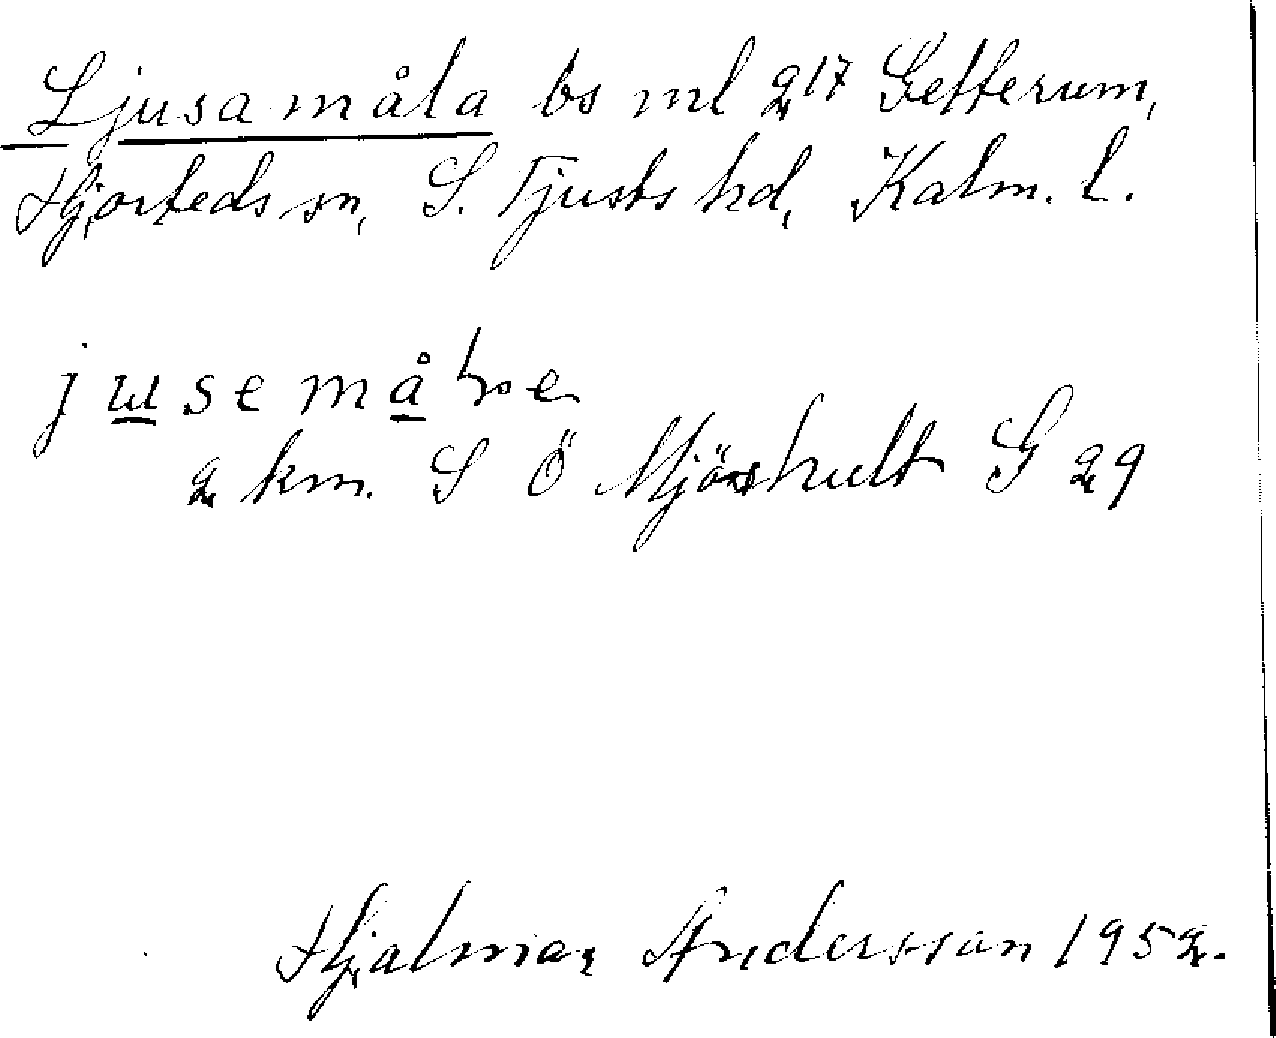 Ljusamåla bs ml 2¹⁷ Getterum,
Hjorteds sn, S. Tjusts hd, Kalm. l.
jusemå
2 km. S Ö Mjöshult G 29
Hjalmar Andersson 1952.